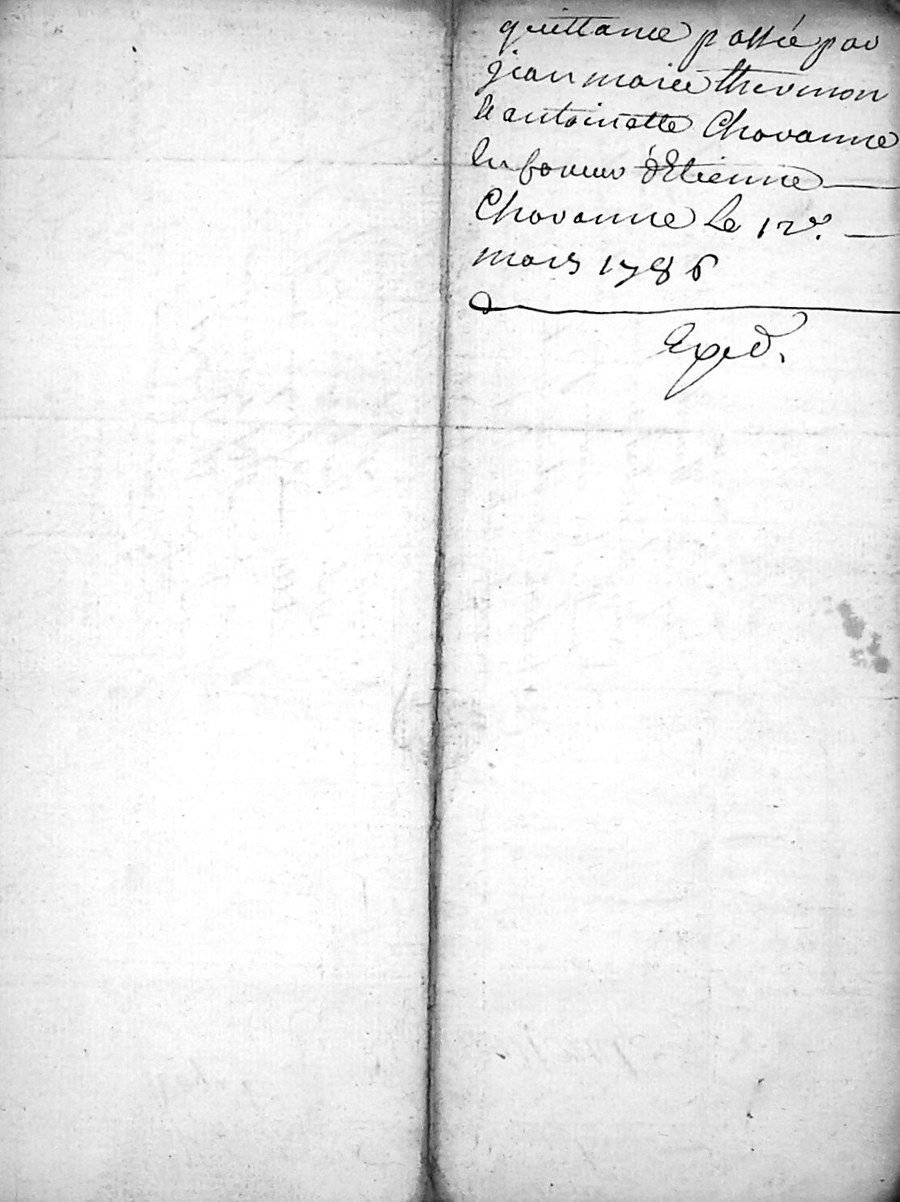 quittance passée par
jean marie thevenon
et antoinette Chavanne
en faveur d'Etienne
Chavanne Le 12e.
mars 1786
Exped.